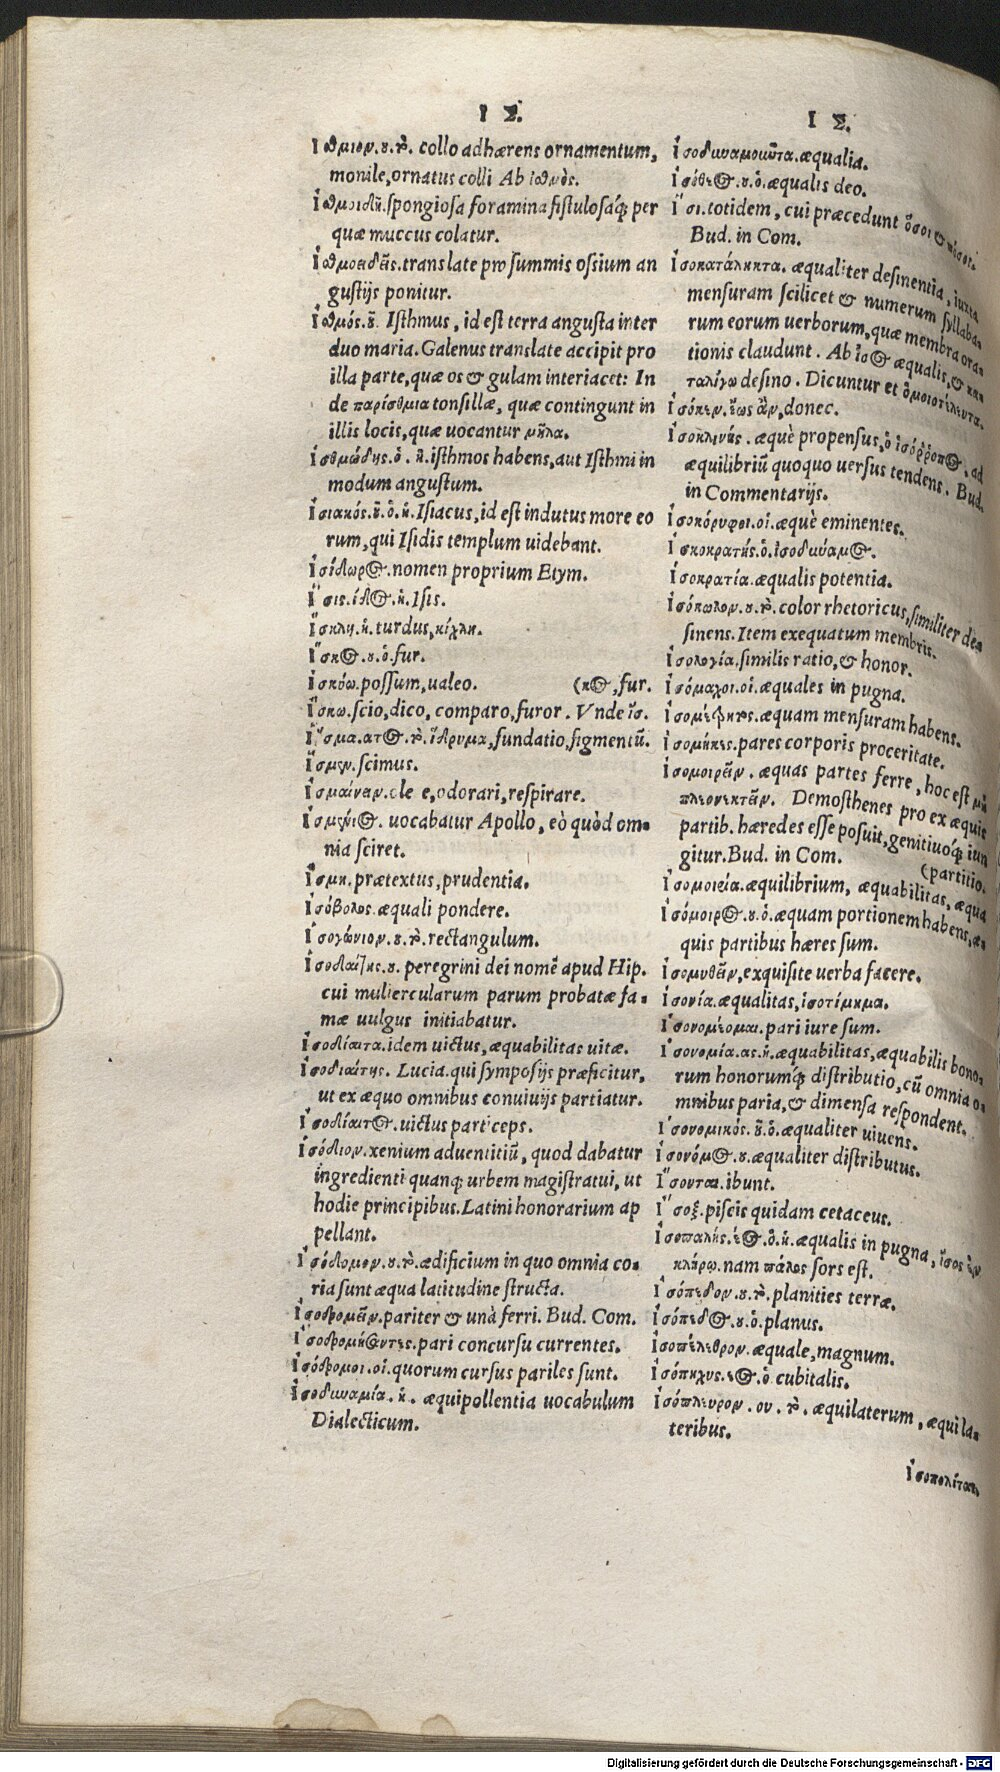 Ι Σ.
Ἴσθμιον.ου.τὸ. collo adhærens ornamentum,
monile,ornatus colli Ab ἰσθμὸς.
Ἰσθμοειδῆ.ſpongioſa foramina fiſtuloſáq; per
quæ muccus colatur.
Ἰσθμοειδεῖς.translate pro ſummis oſsium an
guſtijs ponitur.
Ἰσθμός.οῦ. Iſthmus, id eſt terra anguſta inter
duo maria. Galenus translate accipit pro
illa parte,quæ os & gulam interiacet: In
de παρίσθμια tonſillæ, quæ contingunt in
illis locis,quæ uocantur μῆλα.
Ἰσθμώδης.ὁ. ἡ.iſthmos habens,aut Iſthmi in
modum anguſtum.
Ἰσιακός.οῦ.ὁ.ἡ. Iſiacus,id eſt indutus more eo
rum,qui Iſidis templum uidebant.
Ἰσίδωρος.nomen proprium Etym.
Ἴσις.ιδος.ἡ.Iſis.
Ἴσκλη.ἡ.turdus,κίχλη.
Ἴσκος.ου.ὁ.fur.
Ἰσκόω.poſſum,ualeo. (κος,fur.
Ἴσκω.ſcio,dico, comparo,furor. Vnde ἴσ.
Ἴσμα.ατος.τὸ.ἵδρυμα,fundatio,figmentũ.
Ἴσμεν.ſcimus.
Ἰσμαίνειν.ole e,odorari,reſpirare.
Ἰσμένιος. uocabatur Apollo, eò quòd om-
nia ſciret.
Ἴσμη.prætextus,prudentia.
Ἰσόβολος.æquali pondere.
Ἰσογώνιον.ου.τὸ.rectangulum.
Ἰσοδαίτης.ου. peregrini dei nomẽ apud Hip.
cui muliercularum parum probatæ fa-
mæ uulgus initiabatur.
Ἰσοδίαιτα.idem uictus,æquabilitas uitæ.
Ἰσοδιαίτης. Lucia.qui ſympoſijs præficitur,
ut ex æquo omnibus conuiuijs partiatur.
Ἰσοδίαιτος.uictus particeps.
Ἰσόδιον.xenium aduentitiũ, quod dabatur
ingredienti quanq; urbem magiſtratui, ut
hodie principibus.Latini honorarium ap
pellant.
Ἰσόδομον.ου.τὸ.ædificium in quo omnia co-
ria ſunt æqua latitudine ſtructa.
Ἰσοδρομεῖν.pariter & unà ferri. Bud. Com.
Ἰσοδρομήσαντες.pari concurſu currentes.
Ἰσόδρομοι.οἱ.quorum curſus pariles ſunt.
Ἰσοδυναμία.ἡ. æquipollentia uocabulum
Dialecticum.
Ι Σ.
Ἰσοδυναμοῦντα.æqualia.
Ἰσόθεος.ου.ὁ.æqualis deo.
Ἴσοι.totidem, cui præcedunt ὅσοι & πόσοι.
Bud. in Com.
Ἰσοκατάληκτα. æqualiter deſinentia, iuxta
menſuram ſcilicet & numerum ſyllaba-
rum eorum uerborum,quæ membra ora-
tionis claudunt. Ab ἴσος æqualis,& κα-
ταλήγω deſino. Dicuntur et ὁμοιοτέλευτα.
Ἰσόκεν.ἕως ἂν,donec.
Ἰσοκλινής. æquè propenſus,ὁ ἰσόῤῥοπος. ad
æquilibriũ quoquo uerſus tendens. Bud.
in Commentarijs.
Ἰσοκόρυφοι.οἱ.æquè eminentes.
Ἰσκοκρατής.ὁ.ἰσοδύναμος.
Ἰσοκρατία.æqualis potentia.
Ἰσόκωλον.ου.τὸ.color rhetoricus,ſimiliter de-
ſinens.Item exequatum membris.
Ἰσολογία.ſimilis ratio,& honor.
Ἰσόμαχοι.οἱ.æquales in pugna.
Ἰσομέτρητος.æquam menſuram habens.
Ἰσομήκεις.pares corporis proceritate.
Ἰσομοιρεῖν. æquas partes ferre, hoc eſt μὴ
πλεονεκτεῖν. Demoſthenes pro ex æquis
partib. hæredes eſſe poſuit,genitiuoq́; iun
gitur.Bud. in Com. (partitio.
Ἰσομοιρία.æquilibrium, æquabilitas, æqua
Ἰσόμοιρος.ου.ὁ.æquam portionem habens,æ-
quis partibus hæres ſum.
Ἰσομυθεῖν,exquiſite uerba facere.
Ἰσονία.æqualitas,ἰσοτίμημα.
Ἰσονομέομαι.pari iure ſum.
Ἰσονομία.ας.ἡ.æquabilitas,æquabilis bono-
rum honorumq́; diſtributio,cũ omnia o-
mnibus paria,& dimenſa reſpondent.
Ἰσονομικός.οῦ.ὁ.æqualiter uiuens.
Ἰσονόμος.ου.æqualiter diſtributus.
Ἴσονται.ibunt.
Ἴσοξ.piſcis quidam cetaceus.
Ἰσοπαλής.έος.ὁ.ἡ.æqualis in pugna, ἴσος ἐν
κλήρῳ.nam πάλος ſors eſt.
Ἰσόπεδον.ου.τὸ.planities terræ.
Ἰσόπεδος.ου.ὁ.planus.
Ἰσοπέλεθρον.æquale,magnum.
Ἰσόπηχυς.εος.ὁ cubitalis.
Ἰσόπλευρον. ου. τὸ. æquilaterum, æquila-
teribus.
Ἰσοπολίται.
Digitalisierung gefördert durch die Deutsche Forschungsgemeinschaft - DFG